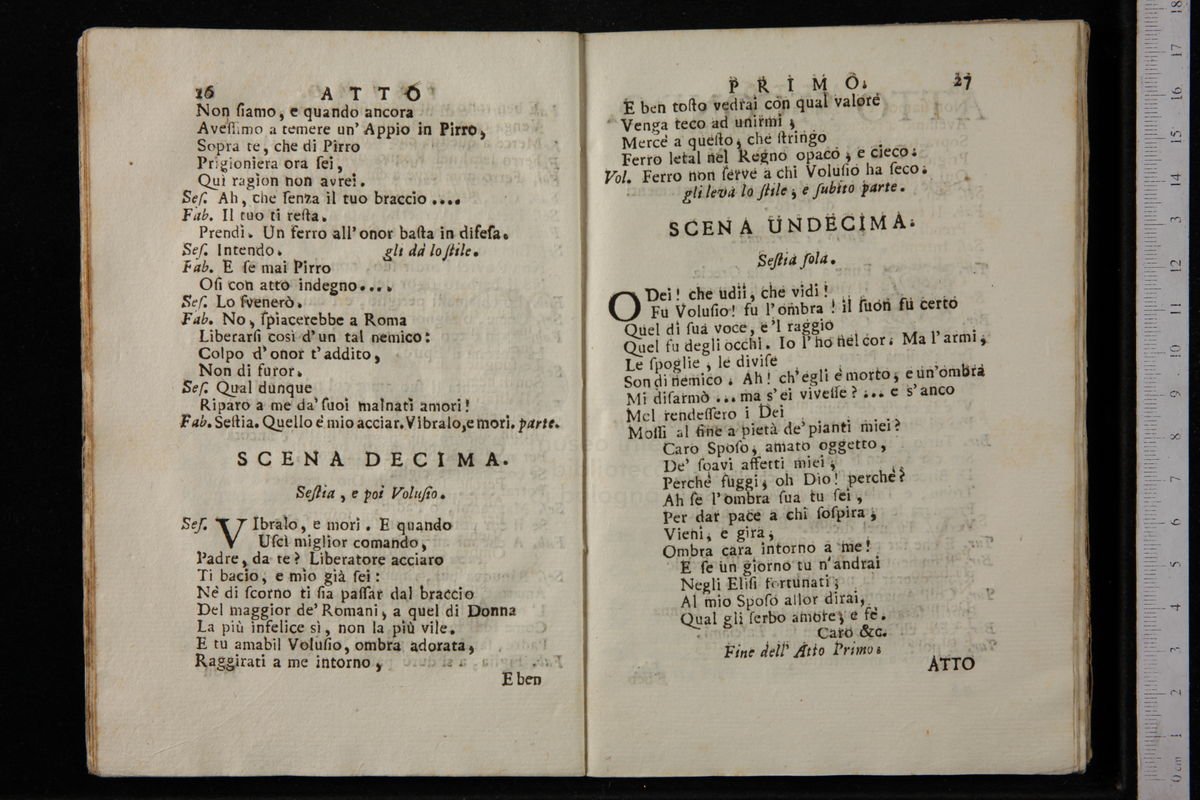 26 ATTO
Non ſiamo, e quando ancora
Aveſſimo a temere un' Appio in Pirro,
Sopra te, che di Pirro
Prigioniera ora ſei,
Qui ragion non avrei.
Seſ. Ah, che ſenza il tuo braccio ....
Fab. Il tuo ti reſta.
Prendi. Un ferro all'onor baſta in difeſa.
Seſ. Intendo. gli dà lo ſtile.
Fab. E ſe mai Pirro
Oſi con atto indegno....
Seſ. Lo ſvenerò.
Fab. No, ſpiacerebbe a Roma
Liberarſi così d'un tal nemico:
Colpo d'onor t'addito,
Non di furor.
Seſ. Qual dunque
Riparo a me da' ſuoi malnati amori!
Fab. Seſtia. Quello è mio acciar. Vibralo, e mori. parte.
SCENA DECIMA.
Seſtia, e poi Voluſio.
Seſ. VIbralo, e mori. E quando
Uſcì miglior comando,
Padre, da te? Liberatore acciaro
Ti bacio, e mio già ſei:
Nè di ſcorno ti ſia paſſar dal braccio
Del maggior de' Romani, a quel di Donna
La più infelice sì, non la più vile.
E tu amabil Voluſio, ombra adorata,
Raggirati a me intorno,
E ben
PRIMO. 27
E ben toſto vedrai con qual valore
Venga teco ad unirmi,
Mercè a queſto, che ſtringo
Ferro letal nel Regno opaco, e cieco.
Vol. Ferro non ſerve a chi Voluſio ha ſeco.
gli leva lo ſtile, e ſubito parte.
SCENA UNDECIMA.
Seſtia ſola.
O Dei! che udii, che vidi!
Fu Voluſio! fu l'ombra! il ſuon fu certo
Quel di ſua voce, e 'l raggio
Quel fu degli occhi. Io l'ho nel cor. Ma l'armi,
Le ſpoglie, le diviſe
Son di nemico. Ah! ch'egli è morto, e un'ombra
Mi diſarmò ... ma s'ei viveſſe? ... e s'anco
Mel rendeſſero i Dei
Moſſi al fine a pietà de' pianti miei?
Caro Spoſo, amato oggetto,
De' ſoavi affetti miei,
Perchè fuggi, oh Dio! perchè?
Ah ſe l'ombra ſua tu ſei,
Per dar pace a chi ſoſpira,
Vieni, e gira,
Ombra cara intorno a me!
E ſe un giorno tu n'andrai
Negli Eliſi fortunati,
Al mio Spoſo allor dirai,
Qual gli ſerbo amore, e fè.
Caro &c.
Fine dell' Atto Primo.
ATTO